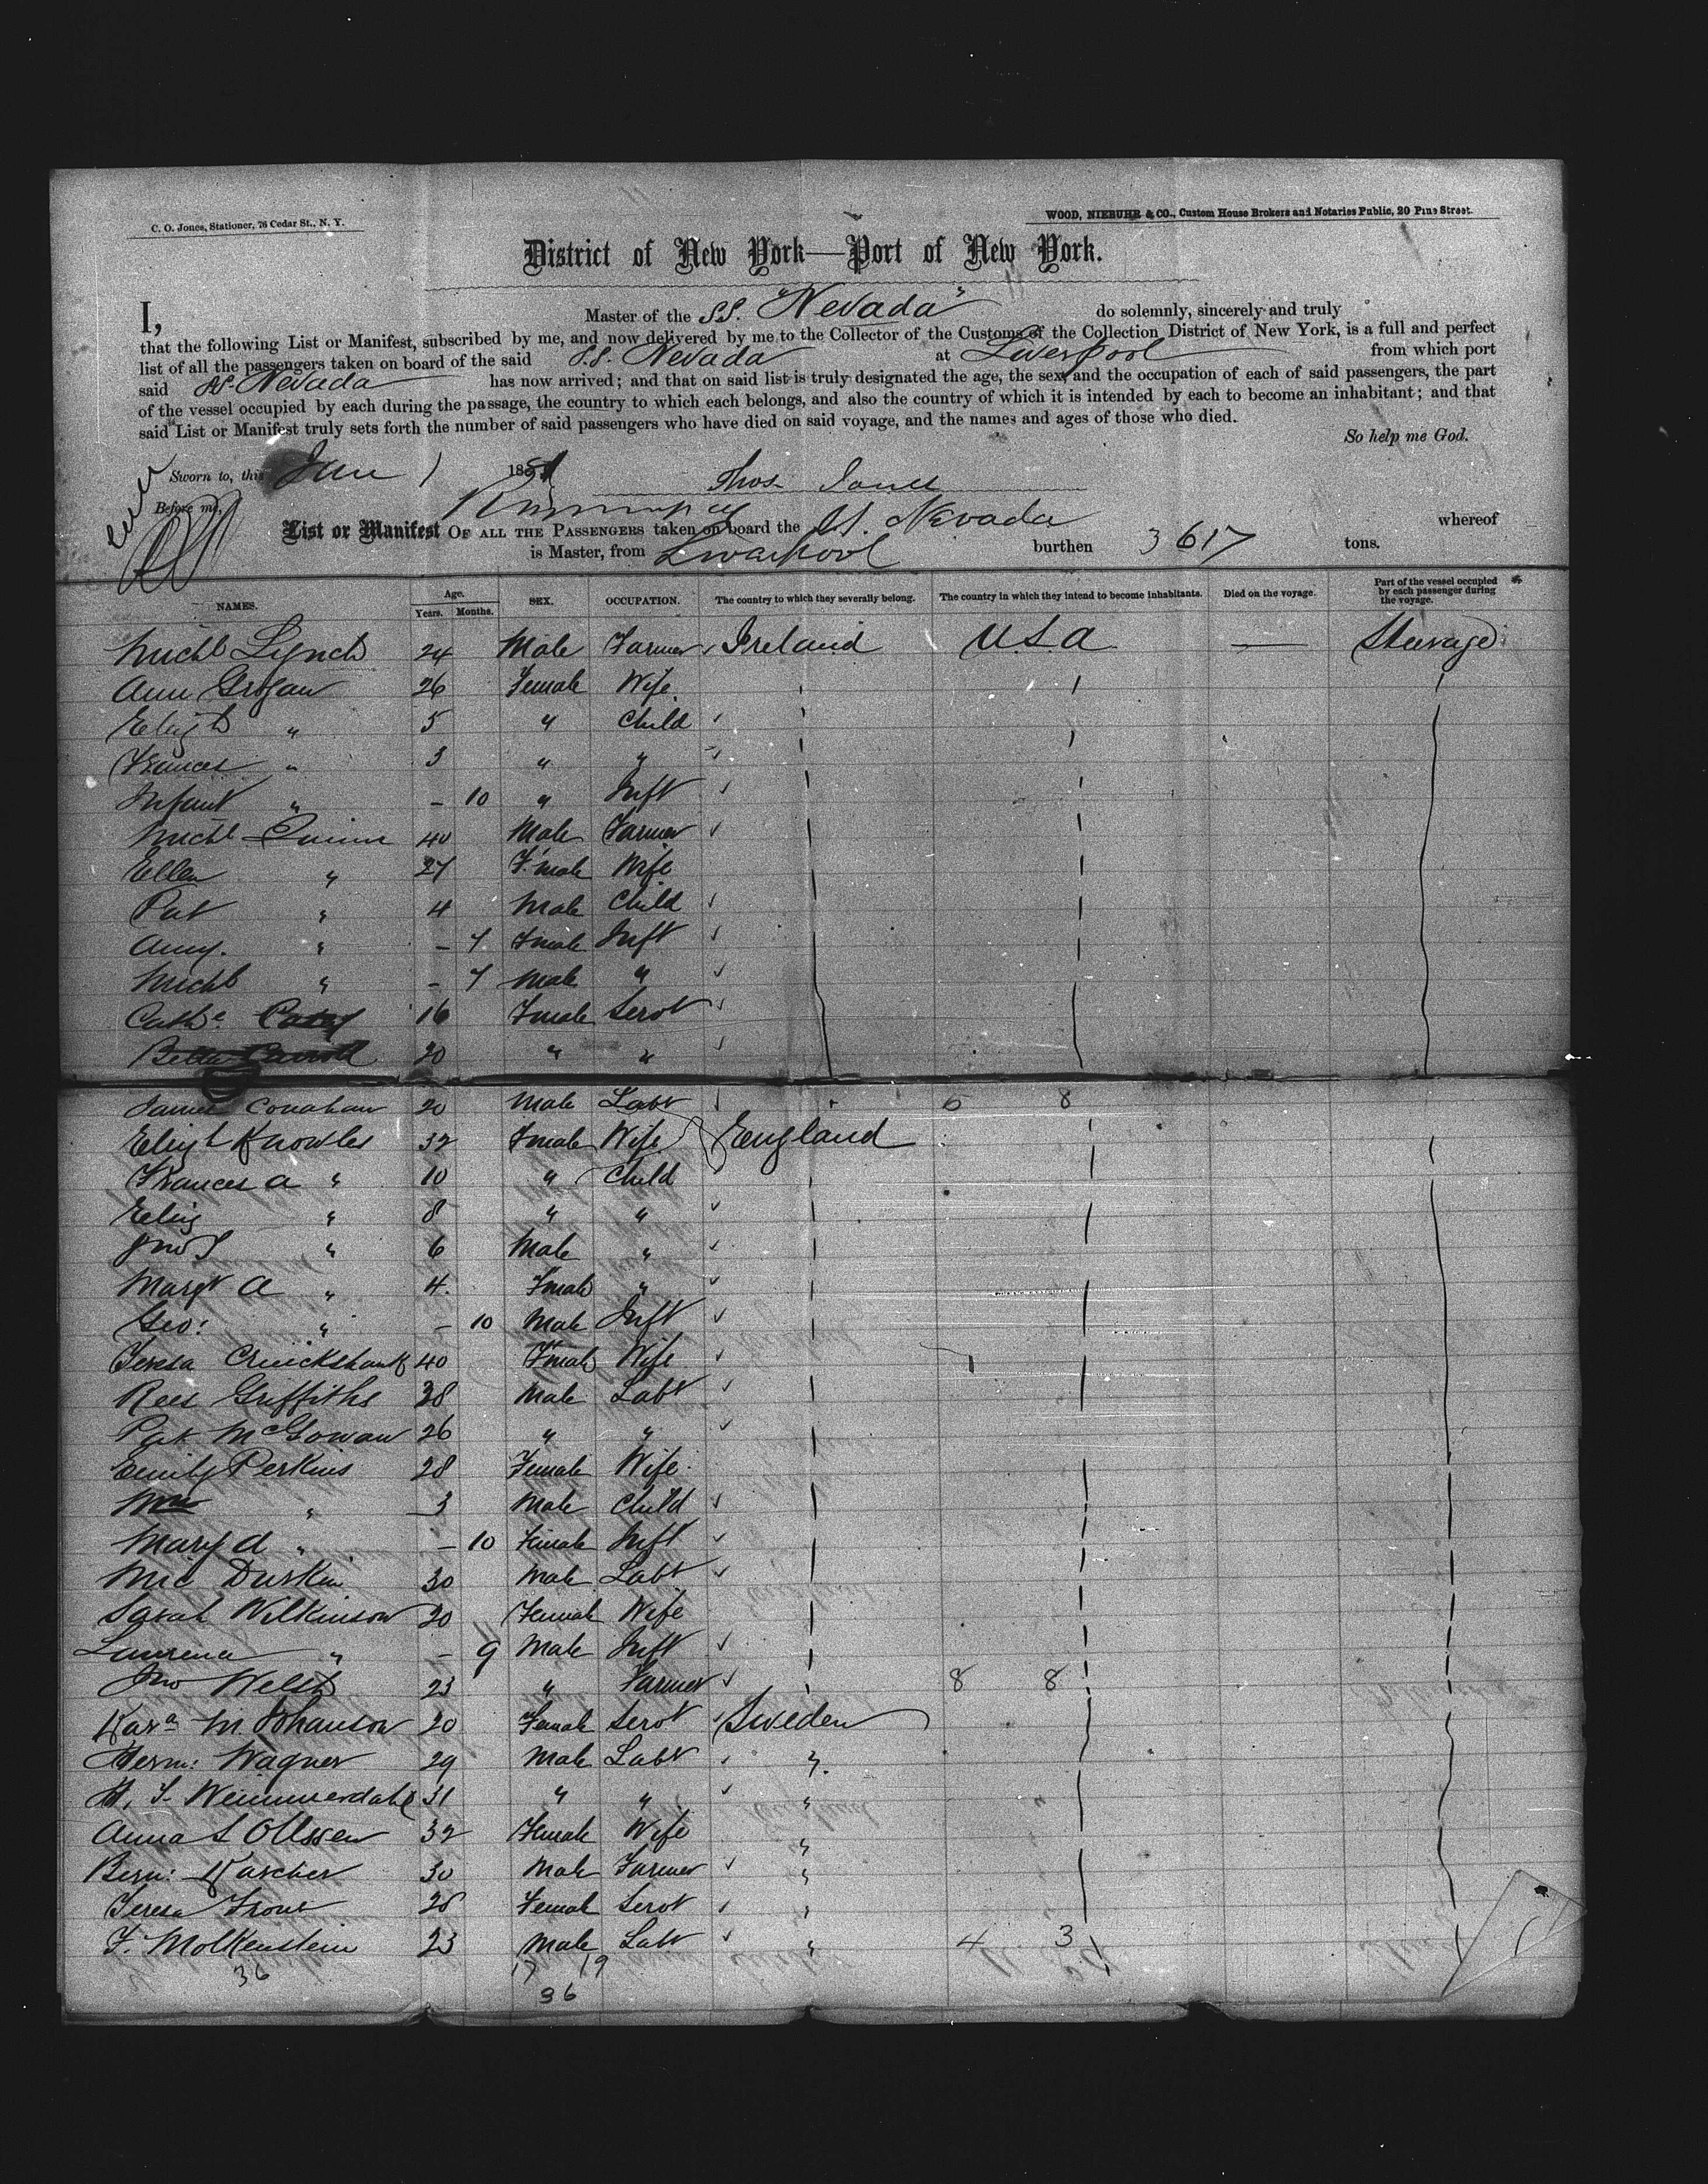 C. O. Jones, Stationer, 76 Cedar St., N. Y.
WOOD, NIEBUHR & CO., Custom House Brokers and Notaries Public, 20 Pine Street.
District of New York—Port of New York.
I, Master of the S.S. "Nevada" do solemnly, sincerely and truly
that the following List or Manifest, subscribed by me, and now delivered by me to the Collector of the Customs of the Collection District of New York, is a full and perfect
list of all the passengers taken on board of the said S.S. Nevada at Liverpool from which port
said SS. Nevada has now arrived; and that on said list is truly designated the age, the sex, and the occupation of each of said passengers, the part
of the vessel occupied by each during the passage, the country to which each belongs, and also the country of which it is intended by each to become an inhabitant; and that
said List or Manifest truly sets forth the number of said passengers who have died on said voyage, and the names and ages of those who died.
So help me God.
Sworn to, this Jan 1 1881
Thos Jones
Before me,
List or Manifest OF ALL THE PASSENGERS taken on board the SS. Nevada whereof
is Master, from Liverpool burthen 3617 tons.
NAMES. Age. Years. Months. SEX. OCCUPATION. The country to which they severally belong. The country in which they intend to become inhabitants. Died on the voyage. Part of the vessel occupied by each passenger during the voyage.
Michl Lynch 24 Male Farmer Ireland U.S.A — Steerage
Ann Grogan 26 Female Wife
Elizth " 5 " Child
Frances " 3 " "
Infant " - 10 " Inft
Michl Quinn 40 Male Farmer
Ellen " 27 F'male Wife
Pat " 4 Male Child
Amy. " - 7 Fmale Inft
Michl " - 7 Male "
Cathe 16 Fmale Servt
Carroll 20 " "
James Conahan 20 Male Labr 5 8
Elizth Knowles 32 Fmale Wife England
Frances A " 10 " Child
Eliz " 8 " "
Jno S " 6 Male "
Margt A " 4. Fmale "
Geo: " - 10 Male Inft
Teresa Cruickshank 40 Fmale Wife
Rees Griffiths 38 Male Labr
Pat McGowan 26 " "
Emily Perkins 28 Female Wife
Wm " 3 Male Child
Mary A " - 10 Female Inft
Mic Durkin 30 Male Labr
Sarah Wilkinson 20 Female Wife
Laurena " - 9 Male Inft
Jno Welsh 23 " Farmer 8 8
Kara M. Johanson 20 Female Servt Sweden
Herm: Wagner 29 Male Labr "
H. F. Wimmerdahl 31 " " "
Anna S Ollssen 32 Female Wife "
Bern: Karcher 30 Male Farmer "
Teresa 28 Female Servt "
F. Molkenstein 23 Male Labr " 4 3
36 17 19
36